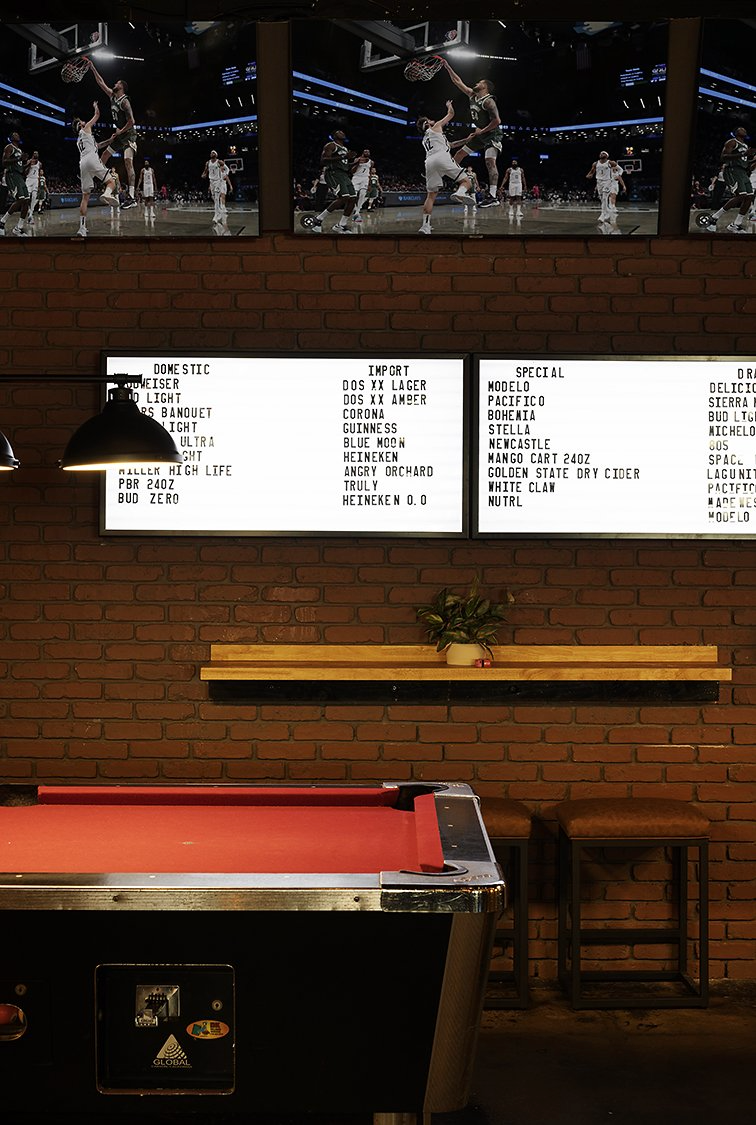 DOMESTIC
DWEISER
LIGHT
RS BANQUET
LIGHT
ULTRA
GHT
MILLER HIGH LIFE
PBR 24OZ
BUD ZERO
IMPORT
DOS XX LAGER
DOS XX AMBER
CORONA
GUINNESS
BLUE MOON
HEINEKEN
ANGRY ORCHARD
TRULY
HEINEKEN 0.0
SPECIAL
MODELO
PACIFICO
BOHEMIA
STELLA
NEWCASTLE
MANGO CART 24OZ
GOLDEN STATE DRY CIDER
WHITE CLAW
NUTRL
DRA
DELICIO
SIERRA N
BUD LIGH
MICHELO
805
SPACE
LAGUNIT
PACIFIC
MADE WES
MODELO
GLOBAL